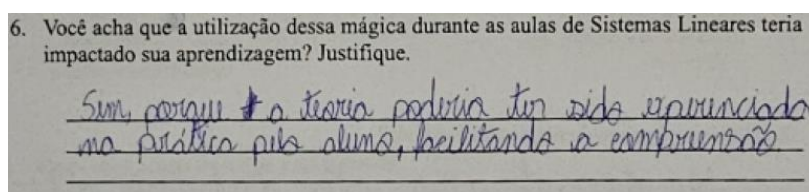 6. Você acha que a utilização dessa mágica durante as aulas de Sistemas Lineares teria
impactado sua aprendizagem? Justifique.
Sim, porque a teoria poderia ter sido experienciada
na prática pelo aluno, facilitando a compreensão